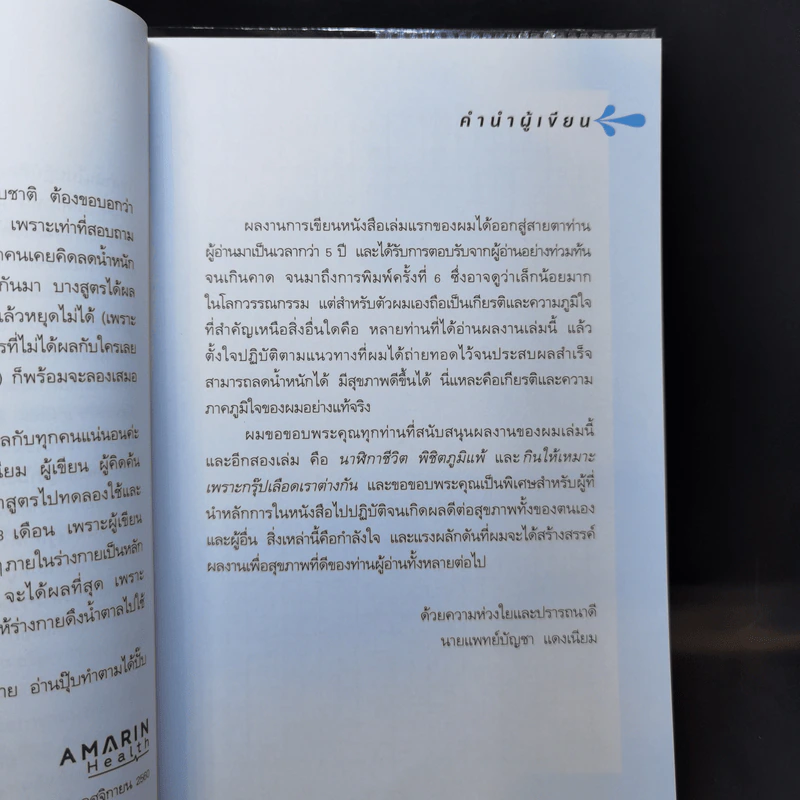 บชาติ ต้องขอบอกว่า
เพราะเท่าที่สอบถาม
าคนเคยคิดลดน้ำหนัก
กันมา บางสูตรได้ผล
แล้วหยุดไม่ได้ (เพราะ
รที่ไม่ได้ผลกับใครเลย
) ก็พร้อมจะลองเสมอ
ลกับทุกคนแน่นอนค่ะ
นียม ผู้เขียน ผู้คิดค้น
าสูตรไปทดลองใช้และ
3 เดือน เพราะผู้เขียน
ๆ ภายในร่างกายเป็นหลัก
จะได้ผลที่สุด เพราะ
ห้ร่างกายดึงน้ำตาลไปใช้
าย อ่านปุ๊บทำตามได้ปั๊บ
AMARIN
Health
ศจิกายน 2560
คำนำผู้เขียน
ผลงานการเขียนหนังสือเล่มแรกของผมได้ออกสู่สายตาท่าน
ผู้อ่านมาเป็นเวลากว่า 5 ปี และได้รับการตอบรับจากผู้อ่านอย่างท่วมท้น
จนเกินคาด จนมาถึงการพิมพ์ครั้งที่ 6 ซึ่งอาจดูว่าเล็กน้อยมาก
ในโลกวรรณกรรม แต่สำหรับตัวผมเองถือเป็นเกียรติและความภูมิใจ
ที่สำคัญเหนือสิ่งอื่นใดคือ หลายท่านที่ได้อ่านผลงานเล่มนี้ แล้ว
ตั้งใจปฏิบัติตามแนวทางที่ผมได้ถ่ายทอดไว้จนประสบผลสำเร็จ
สามารถลดน้ำหนักได้ มีสุขภาพดีขึ้นได้ นี่แหละคือเกียรติและความ
ภาคภูมิใจของผมอย่างแท้จริง
ผมขอขอบพระคุณทุกท่านที่สนับสนุนผลงานของผมเล่มนี้
และอีกสองเล่ม คือ นาฬิกาชีวิต พิชิตภูมิแพ้ และ กินให้เหมาะ
เพราะกรุ๊ปเลือดเราต่างกัน และขอขอบพระคุณเป็นพิเศษสำหรับผู้ที่
นำหลักการในหนังสือไปปฏิบัติจนเกิดผลดีต่อสุขภาพทั้งของตนเอง
และผู้อื่น สิ่งเหล่านี้คือกำลังใจ และแรงผลักดันที่ผมจะได้สร้างสรรค์
ผลงานเพื่อสุขภาพที่ดีของท่านผู้อ่านทั้งหลายต่อไป
ด้วยความห่วงใยและปรารถนาดี
นายแพทย์บัญชา แดงเนียม